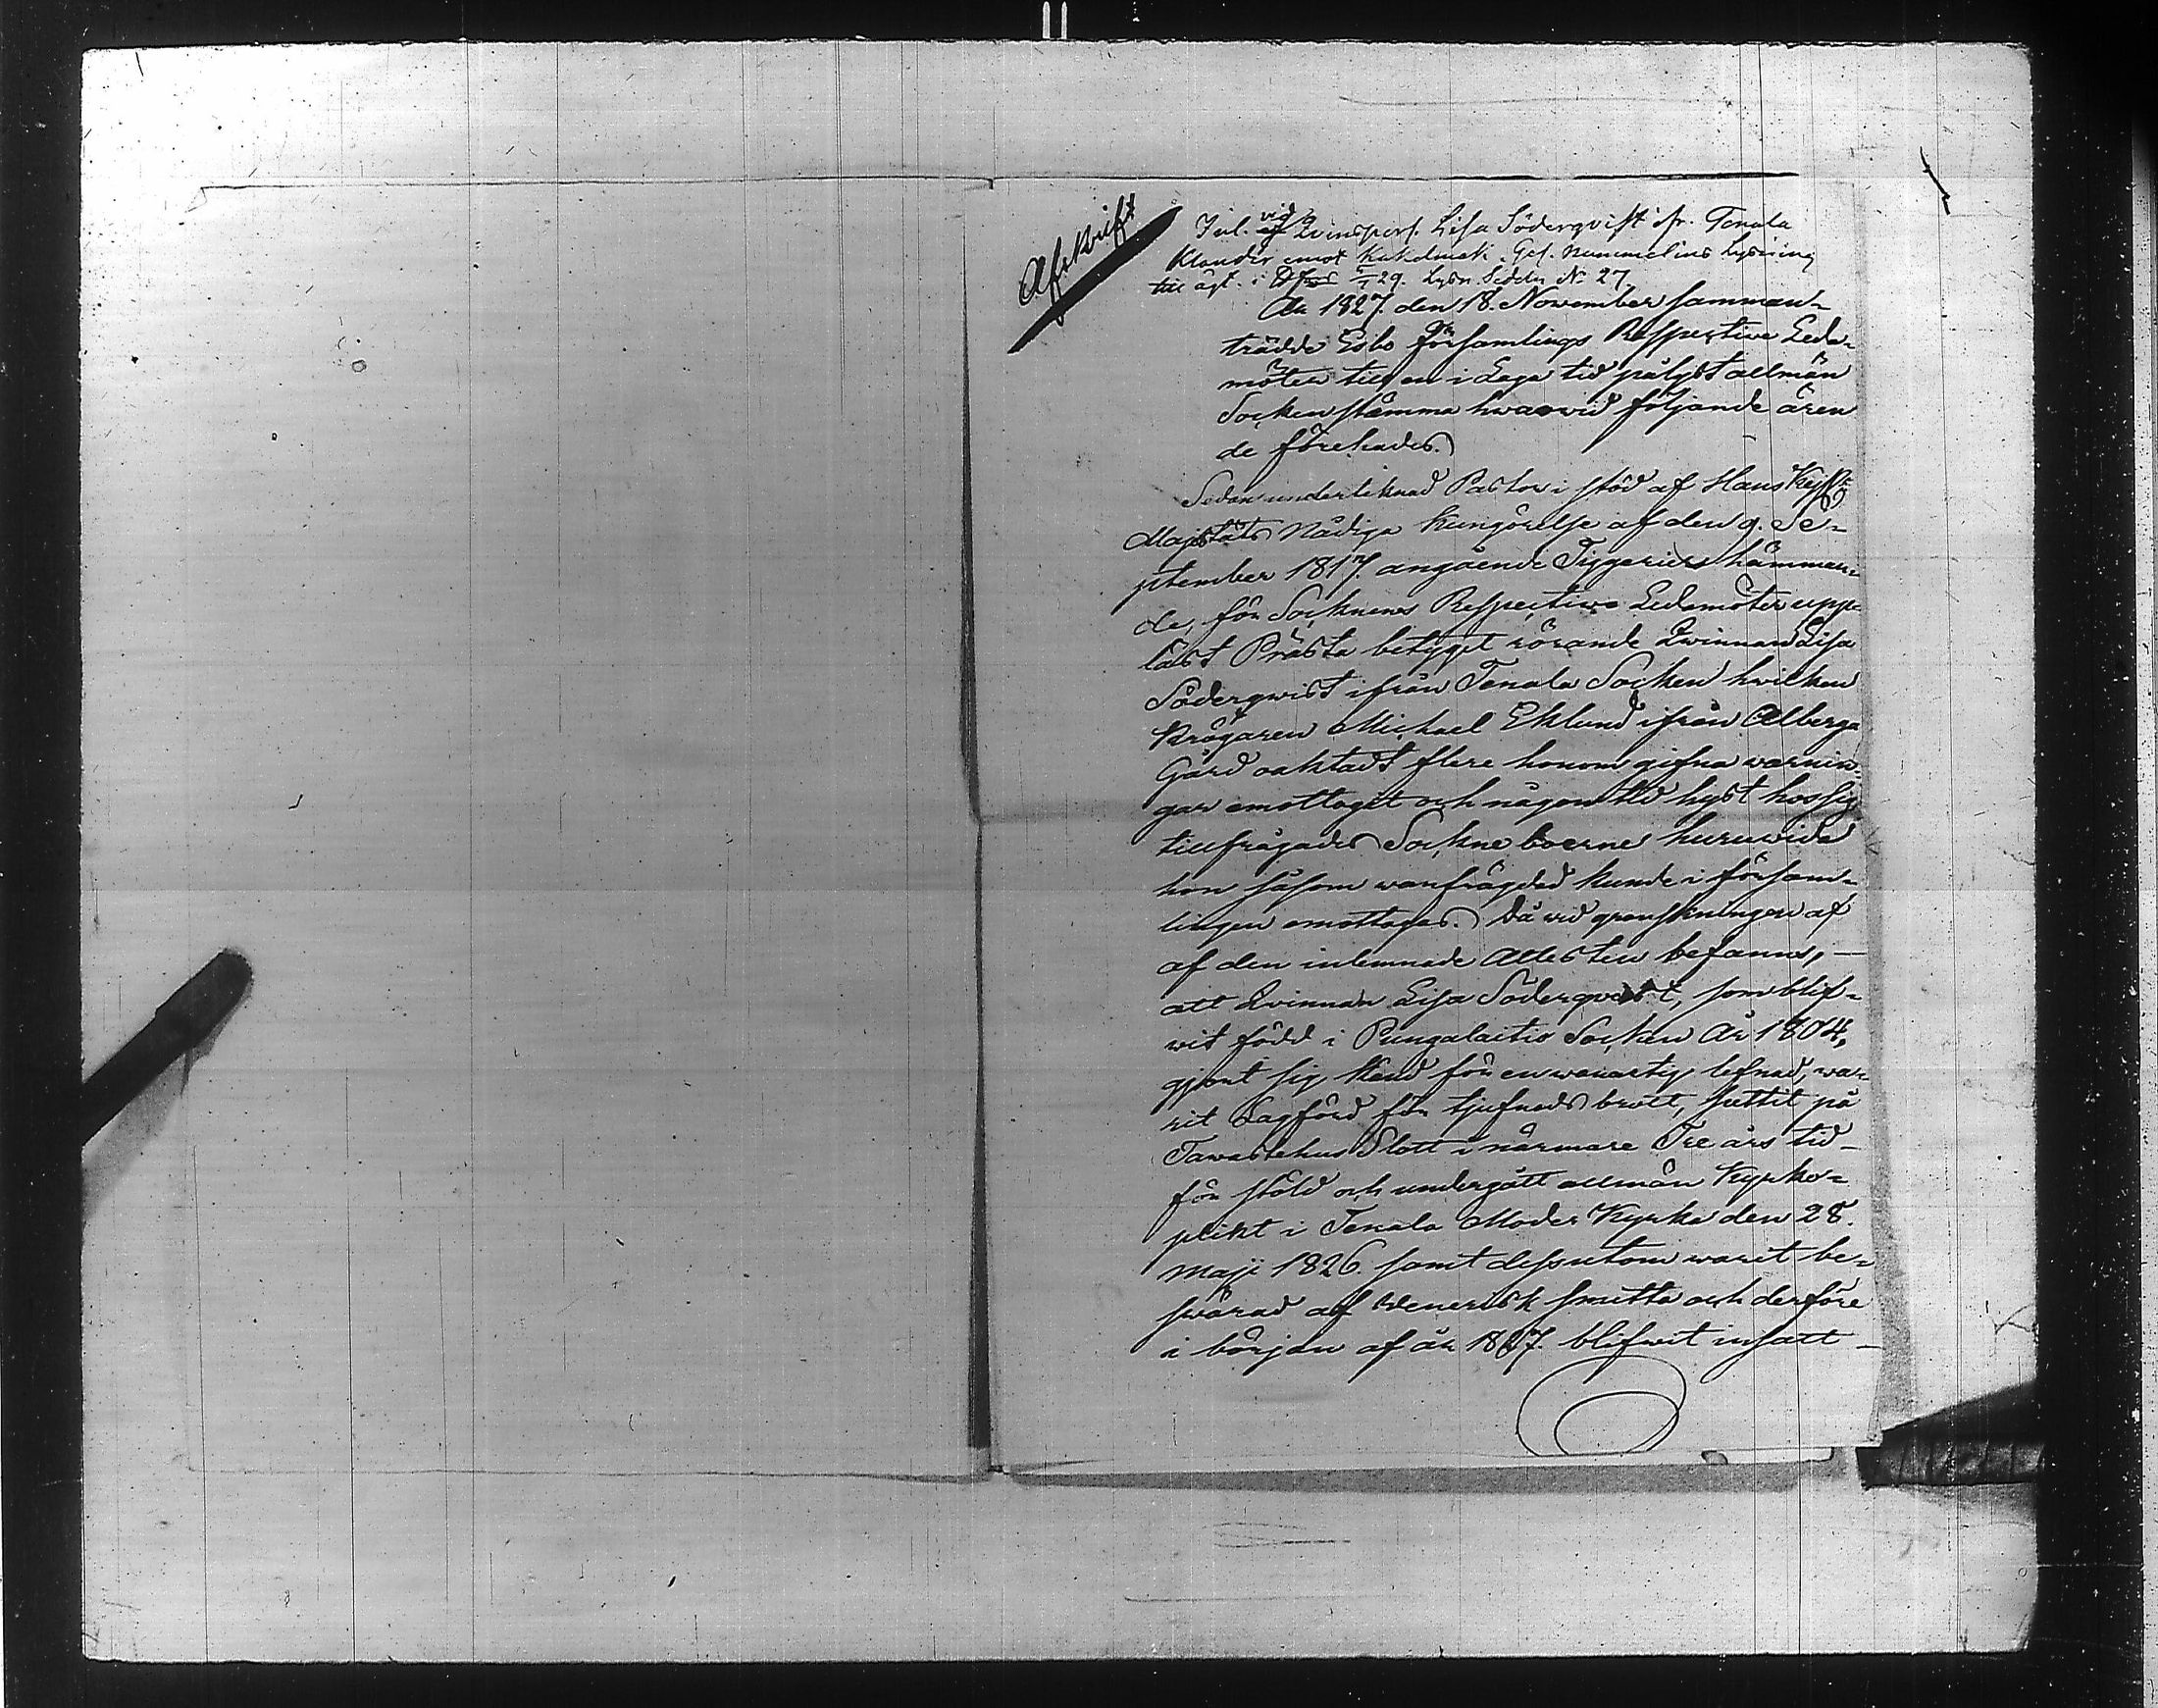 Afskrift
vid
Jnl. af Qvinspers. Lisa Söderqvist ifr. Tenala
Klander emot Kukolmaki. Gef. Nummelins Lysning
till ägt. i Esbo 29. Lysn. Sedeln No 27
År 1827. den 18. November samman-
trädde Esbo Församlings Respective Leda-
möter till en i Laga tid pålyst allmän
Sockenstämma hwarwid följande ären
de förehades.
Sedan underteknad Pastor i stöd af Hans Kejsr:
Majestäts Nådiga Kungörelse af den 9. Se-
ptember 1817. angående Tiggeriers hämman-
de, för Socknens Respective Ledamöter upp-
läst Prästa betyget rörande Qwinnan Lisa
Söderqwist ifrån Tenala Socken hwilken
Krögaren Michael Eklund ifrån Alberga
Gård oaktadt flere honom gifna warnin-
gar emottagit och någon tid hyst hos sig
tillfrågades Sockne boerne huruwida
hon såsom wanfrägdad kunde i försam-
lingen emottagas. Då wid granskningen af
af den inlemnade Attesten befanns, —
att Qvinnan Lisa Söderqvist, som blif-
wit född i Pungalaitio Socken År 1804,
gjort sig känd för en wanartig lefnad, wa-
rit Lagförd för tjufnads brott, suttit på
Tawastehus Slott i närmare Tre års tid —
för stöld och undergått allmän Kyrko-
plikt i Tenala Moder Kyrka den 28.
Maji 1826. samt dessutom warit be-
swärad af Wenerisk smitta och derföre
i början af år 1827. blifwit insatt —